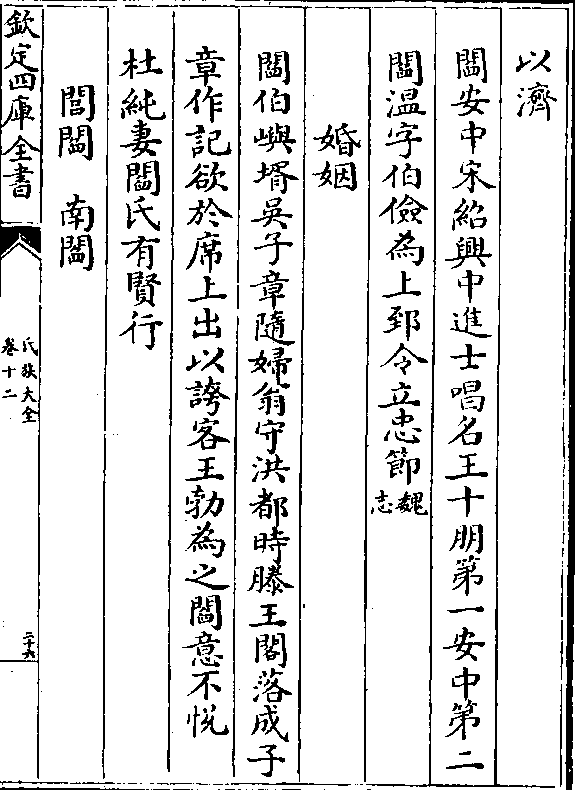 以濟
閻安中宋紹興中進士唱名王十朋第一安中第二
閻溫字伯儉為上邽令立忠節魏志
婚姻
閻伯嶼壻吳子章隨婦翁守洪都時滕王閣落成子
章作記欲於席上出以誇客王勃為之閻意不悅
杜純妻閻氏有賢行
閭閻　南閻
欽定四庫全書
氏族大全
卷十二
二十六